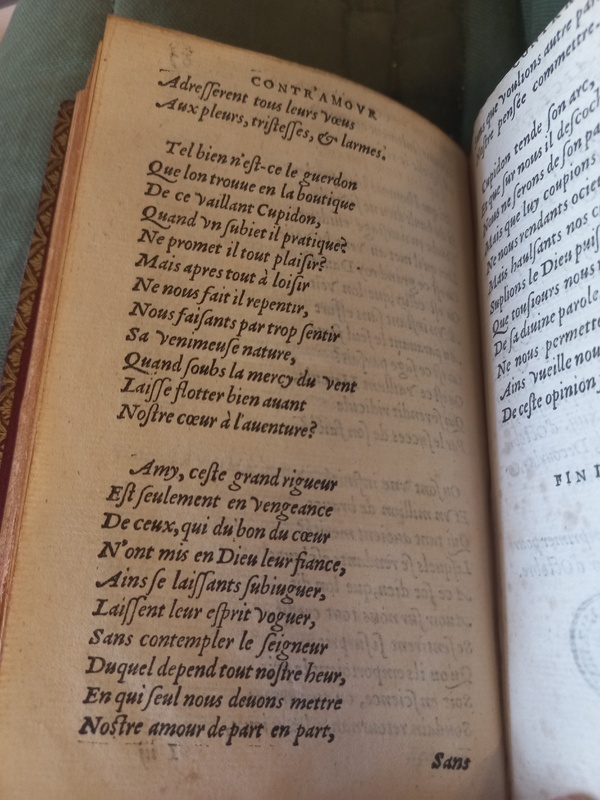 CONTR'AMOVR
Adreſſerent tous leurs vœus
Aux pleurs, triſteſſes, & larmes.
Tel bien n'eſt-ce le guerdon
Que lon trouue en la boutique
De ce vaillant Cupidon,
Quand vn ſubiet il pratique?
Ne promet il tout plaiſir?
Mais apres tout à loiſir
Ne nous fait il repentir,
Nous faiſants par trop ſentir
Sa venimeuſe nature,
Quand ſoubs la mercy du vent
Laiſſe flotter bien auant
Noſtre cœur à l'auenture?
Amy, ceſte grand rigueur
Eſt ſeulement en vengeance
De ceux, qui du bon du cœur
N'ont mis en Dieu leur fiance,
Ains ſe laiſſants ſubiuguer,
Laiſſent leur eſprit voguer,
Sans contempler le ſeigneur
Duquel depend tout noſtre heur,
En qui ſeul nous deuons mettre
Noſtre amour de part en part,
Sans
que voulions autre par
penſée commettre
Cupidon tende ſon arc,
Et que ſur nous il deſcoch
Nous ne ſerons de ſon pa
Mais que luy coupions
Ne nous rendants
Mais hauſſants nos c
Suplions le Dieu puiſ
Que touſiours nous
De ſa diuine parole
Ne nous permette
Ains vueille nou
De ceſte opinion
FIN